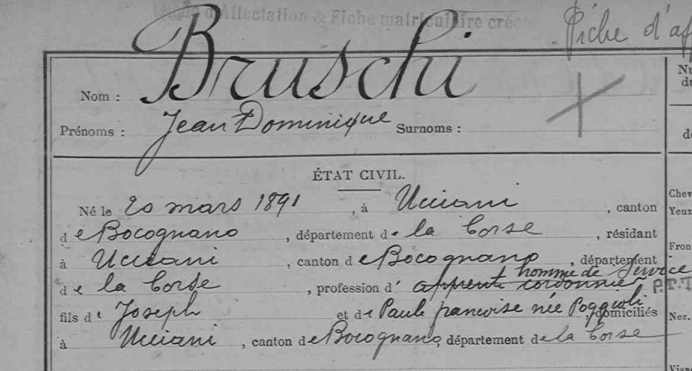 d'Affectation & Fiche matriculaire créée
Fiche d'af
Bruschi
Nom :
Prénoms : Jean Dominique Surnoms :
Nu
du
d
ÉTAT CIVIL.
Né le 20 mars 1891, à Ucciani, canton
de Bocognano, département de la Corse, résidant
à Ucciani, canton de Bocognano, département
homme de service
de la Corse, profession d' apprenti cordonnier P.T.T
fils de Joseph et de Paule francoise née Poggioli, domiciliés
à Ucciani, canton de Bocognano, département de la Corse
Chev
Yeux
Fron
Nez.
Visag